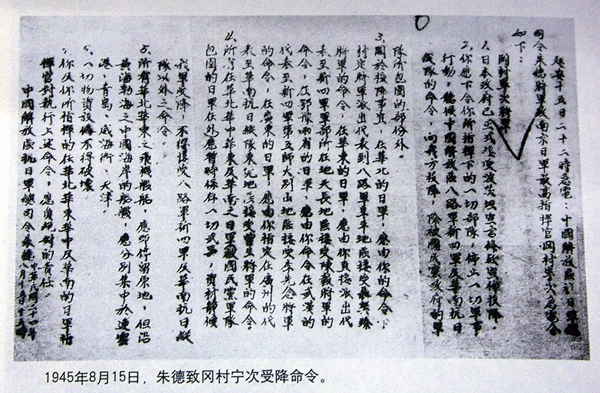 延安十五日二十二時急電：中國解放區抗日軍總
司令朱德將軍致南京日軍最高指揮官岡村寧次急電令
如下：
岡村寧次將軍：
1.日本政府已正式接受波茨坦宣言條款宣佈投降，
2.你應下令你所指揮下的一切部隊，停止一切軍事
行動，聽候中國解放區八路軍新四軍及華南抗日
縱隊的命令，向我方投降，除被國民黨政府的軍
隊所包圍的部份外。
3.關於投降事宜，在華北的日軍，應由你命令下
村定將軍派出代表到八路軍阜平地區接受聶榮臻
將軍的命令，在華東的日軍，應由你直接派出代
表至新四軍軍部所在地天長地區接受陳毅將軍的
命令，在鄂豫兩省的日軍，應由你命令在武漢的
代表至新四軍第五師大別山地區接受李先念將軍
的命令，在廣東的日軍，應由你指定在廣州的代
表至華南抗日縱隊東莞地區接受曾生將軍的命令
4.所有在華北華東華中及華南之日軍被國民黨軍隊
包圍的日軍在外應暫時保存一切武器，資材靜候
我軍受降，不得接受八路軍新四軍及華南抗日縱
隊以外之命令。
5.所有華北華東之飛機艦船，應即停留原地，但沿
黃海渤海之中國海岸的船艦，應分別集中於連雲
港，青島，威海衛，天津。
6.一切物資設備不得破壞。
7.你及你所指揮的在華北華東華中及華南的日軍指
揮官對執行上述命令，應負絕對的責任。
中國解放區抗日軍總司令朱德
中華民國三十四年
八月十五日
1945年8月15日，朱德致冈村宁次受降命令。